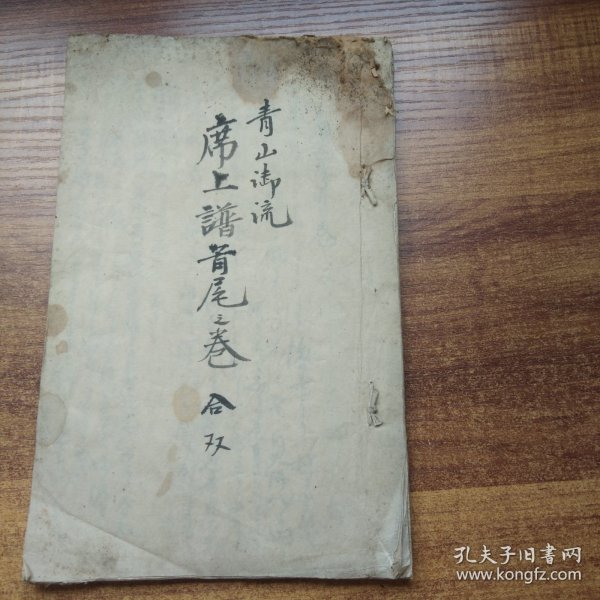 青山御流
席上譜首尾之巻 合双
孔夫子旧书网
www.kongfz.com